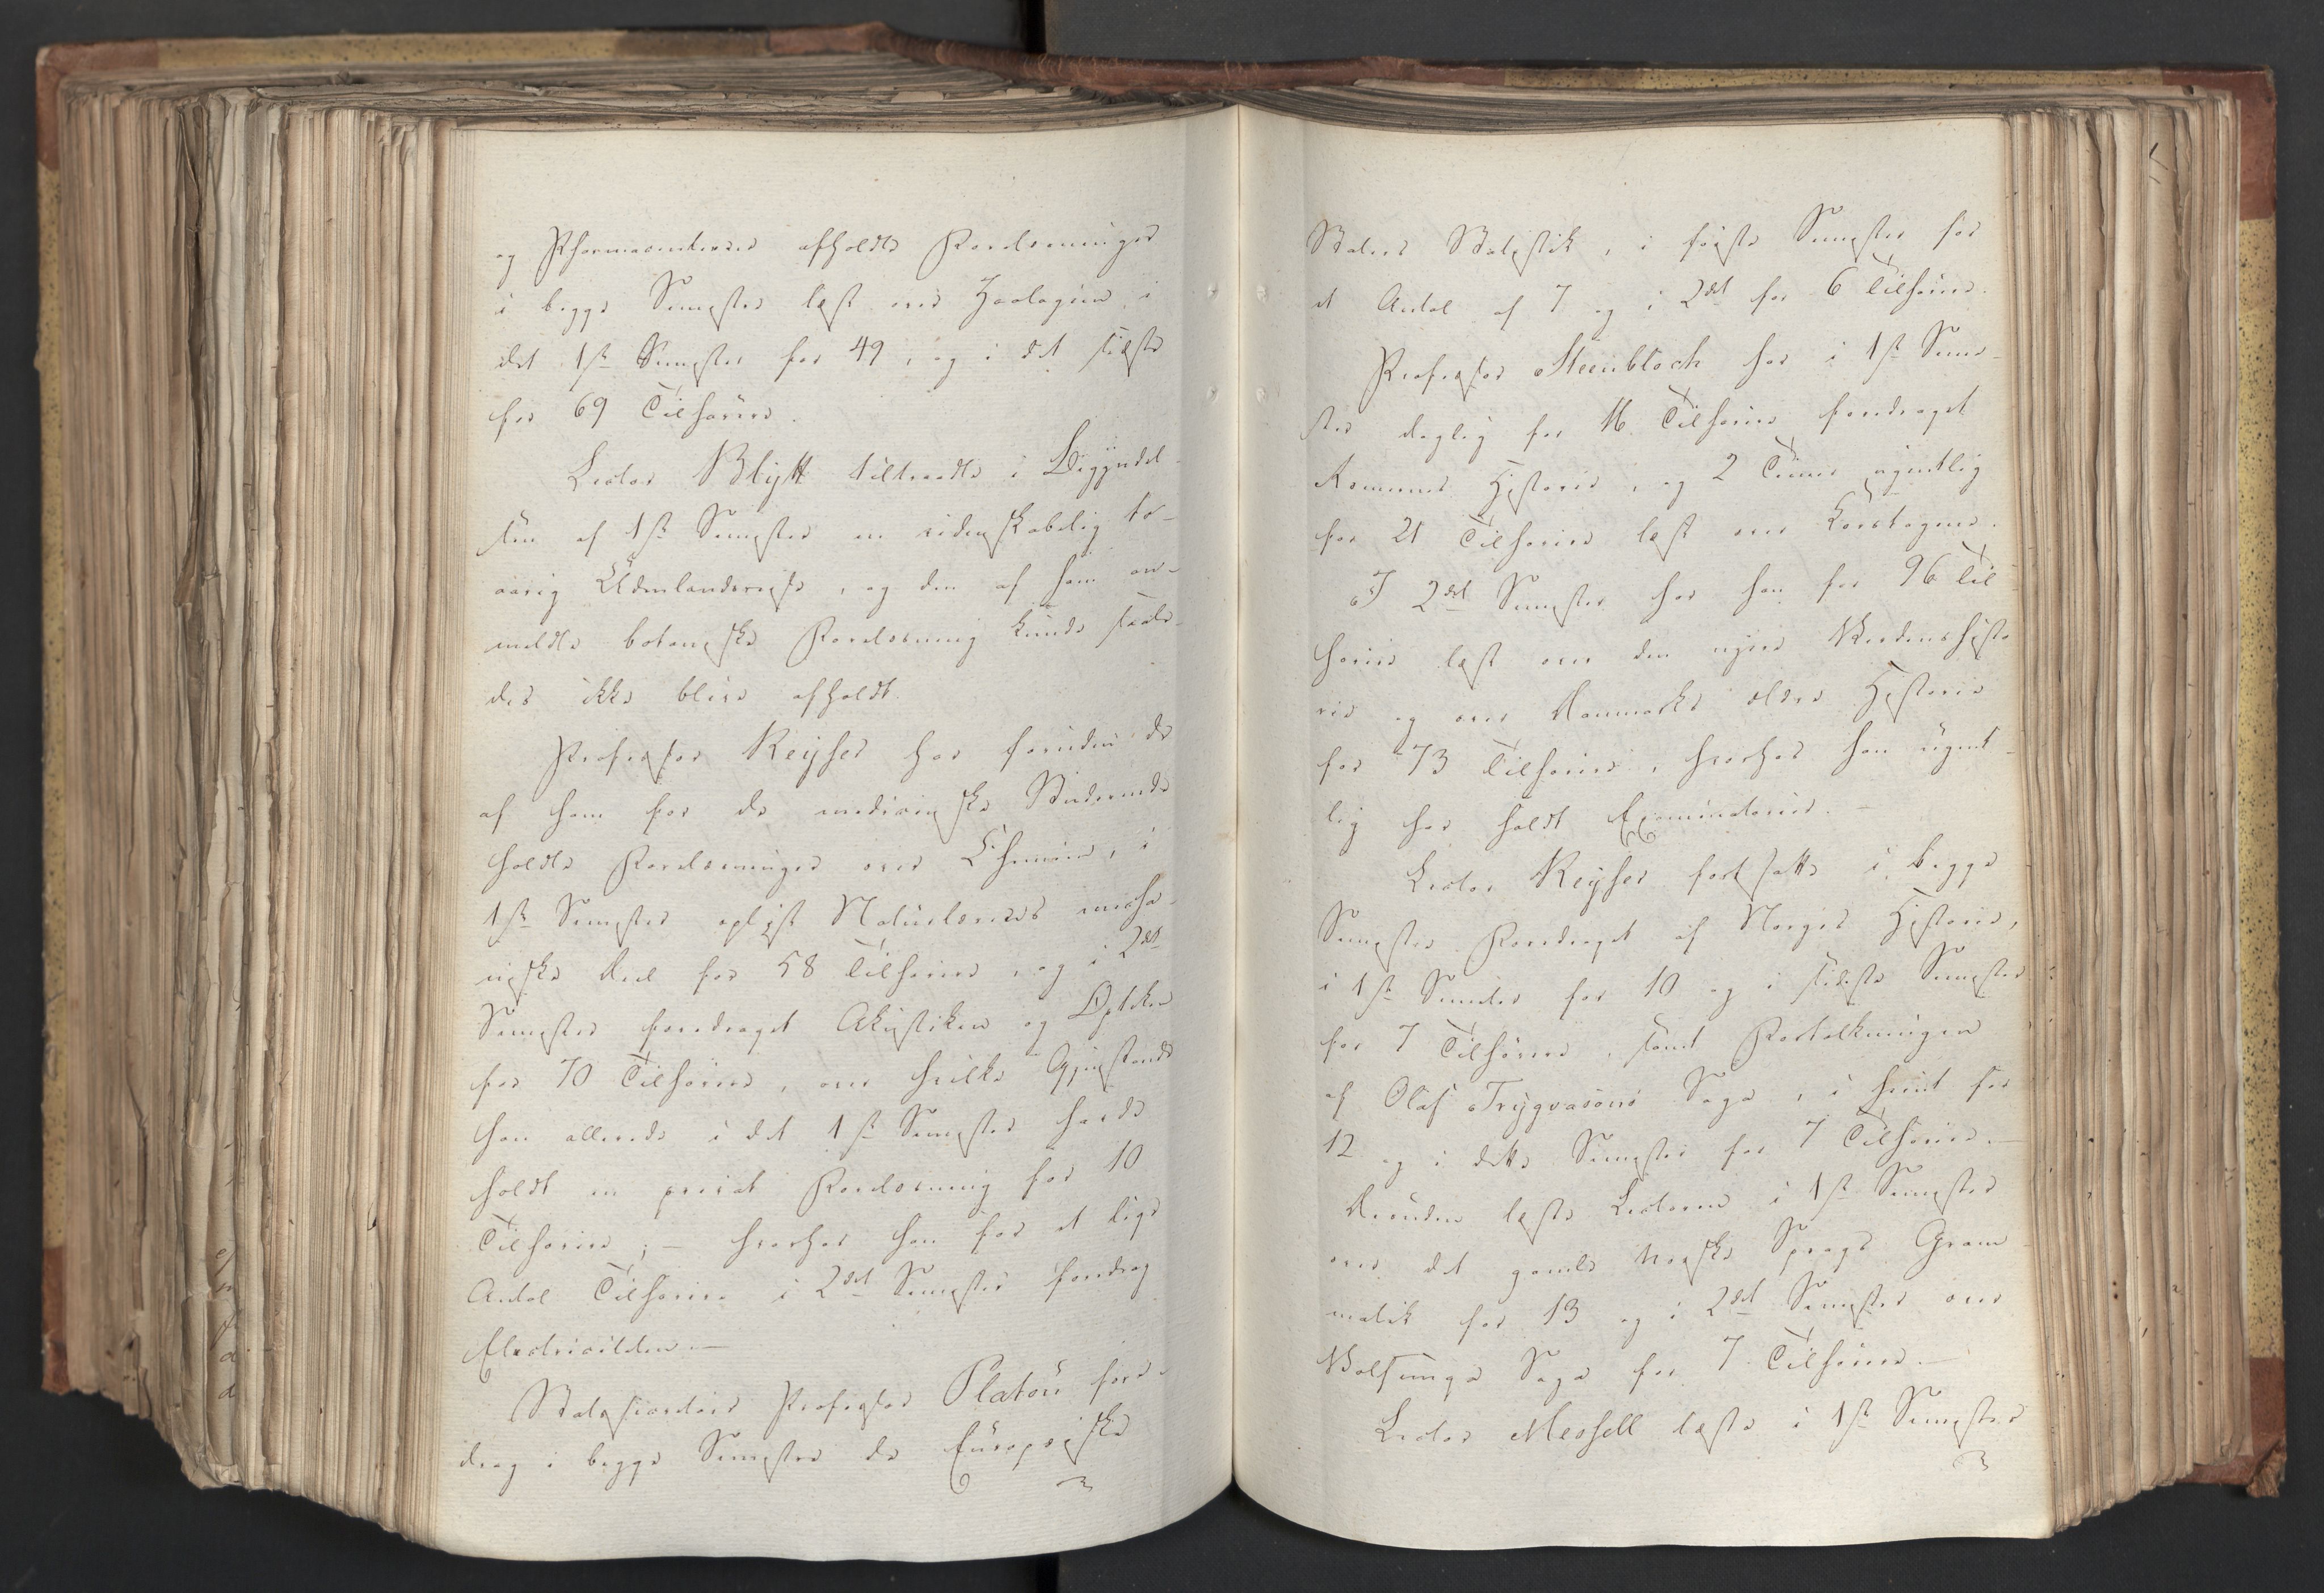 og Pharmaceuterne afholdte Forelæsninger
i begge Semestre læst over Zoologien, i
det 1ste Semester for 49, og i det sidste
for 69 Tilhørere.
Lector Blytt tiltraadte i Begyndel-
sen af 1ste Semester en videnskabelig to-
aarig Udenlandsreise, og den af ham an-
meldte botaniske Forelæsning kunde saale-
des ikke blive afholdt.
Professor Keyser har foruden de
af ham for de medicinske Studerende
holdte Forelæsninger over Chemien, i
1ste Semester oplyst Naturlærens mecha-
niske Deel for 58 Tilhørere, og i 2det
Semester foredraget Akustiken og Optiken
for 70 Tilhørere, over hvilke Gjenstande
han allerede i det 1ste Semester havde
holdt en privat Forelæsning for 10
Tilhørere; – hvorhos han for et lige
Antal Tilhørere i 2det Semester foredrog
Electriciteten. –
Statssecretair Professor Platou fore-
drog i begge Semestre de Europæiske
Staters Statistik, i første Semester for
et Antal af 7 og i 2det for 6 Tilhørere.
Professor Steenbloch har i 1ste Seme-
ster daglig for 16 Tilhørere foredraget
Romernes Historie, og 2 Timer ugentlig
for 21 Tilhørere læst over Korstogene.
I 2det Semester har han for 96 Til-
hørere læst over den nyere Verdenshisto-
rie og over Danmarks ældre Historie
for 73 Tilhørere, hvorhos han ugent-
lig har holdt Examinatorier. –
Lector Keyser fortsatte i begge
Semestre Foredraget af Norges Historie,
i 1ste Semester for 10 og i sidste Semester
for 7 Tilhørere, samt Fortolkningen
af Olaf Trygvasons Saga, i hiint for
12 og i dette Semester for 7 Tilhørere. –
Desuden læste Lectoren i 1ste Semester
over det gamle norske Sprogs Gram-
matik for 13 og i 2det Semester over
Volsunga Saga for 7 Tilhørere. –
Lector Messell læste i 1ste Semester